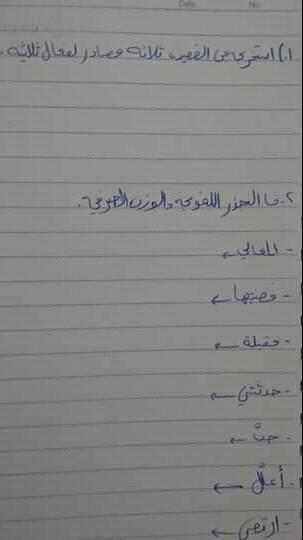 Date No.
١) استخرجي من القصيدة ثلاثة مصادر لأفعال ثلاثية.
٢. ما الجذر اللغوي والوزن الصرفي.
- المعالي ←
- قصيتها ←
- مقبلة ←
- حدثتني ←
- حبّا ←
- أعلّ ←
- ارتضى ←